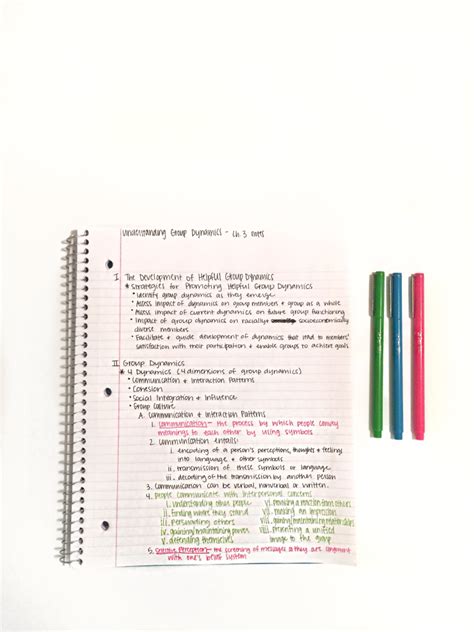 Understanding Group Dynamics - Ch. 3 notes
I. The Development of Helpful Group Dynamics
* Strategies for Promoting Helpful Group Dynamics
• Identify group dynamics as they emerge
• Assess impact of group dynamics on members + group as a whole
• Assess impact of current dynamics on future group functioning
• Impact of group dynamics on racially + socioeconomically
diverse members
• Facilitate + guide development of dynamics that lead to members'
satisfaction with their participation + enable groups to achieve goals
II. Group Dynamics
* 4 Dynamics (4 dimensions of group dynamics)
• Communication + Interaction Patterns
• Cohesion
• Social Integration + Influence
• Group Culture
A. Communication + Interaction Patterns
1. Communication - the process by which people convey
meanings to each other by using symbols
2. Communication entails:
i. encoding of a person's perceptions, thoughts + feelings
into language + other symbols
ii. transmission of these symbols or language
iii. decoding of the transmission by another person
3. Communication can be verbal, nonverbal or written.
4. People communicate with interpersonal concerns
i. understanding other people
ii. finding where they stand
iii. persuading others
iv. gaining/maintaining power
v. defending themselves
vi. provoking a reaction from others
vii. making an impression
viii. gaining/maintaining relationships
viii. presenting a unified
image to the group
5. Selective Perception - the screening of messages so they are congruent
with one's belief system